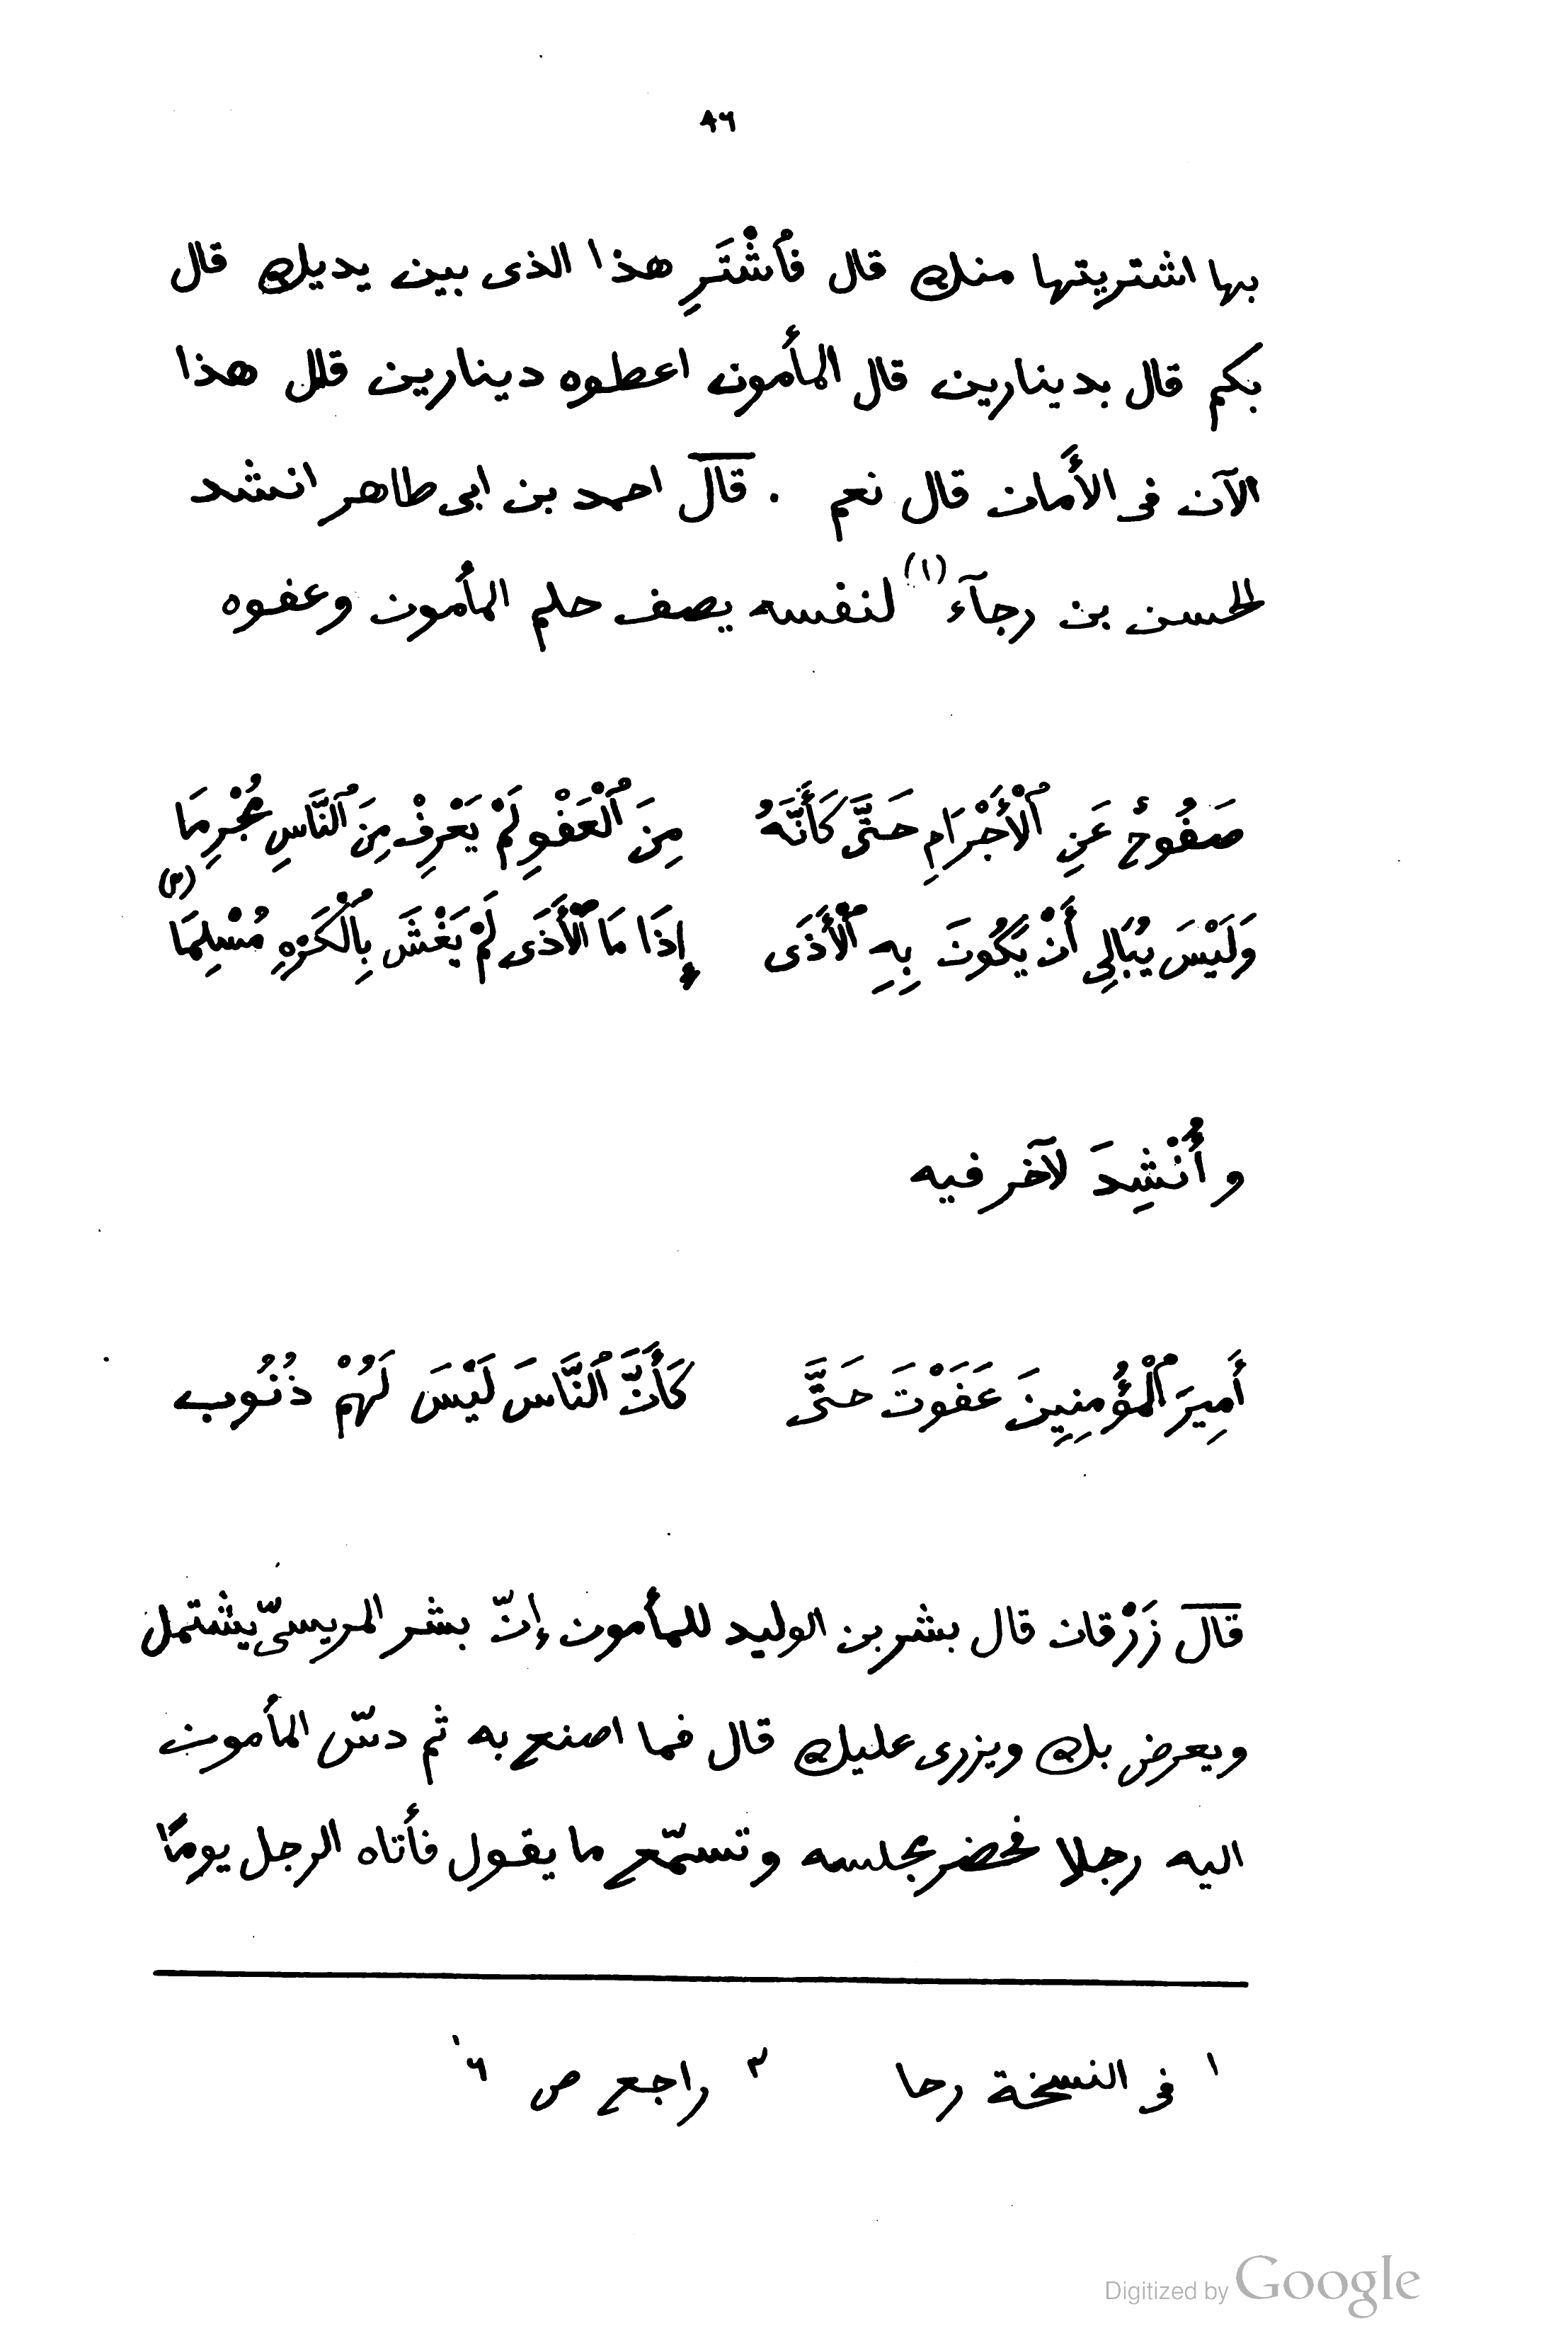 ٨٦
بها اشتريتها منك قال فأَشْتَرِ هذا الذى بين يديك قال
بكم قال بدينارين قال المأمون اعطوه دينارين قال هذا
الآن فى الأَمان قال نعم . قال احمد بن ابى طاهر انشد
الحسن بن رجآء (١) لنفسه يصف حلم المأمون وعفوه
صَفُوحٌ عَنِ ٱلْأَجْرَامِ حَتَّى كَأَنَّهُ مِنَ ٱلْعَفْوِ لَمْ يَعْرِفْ مِنَ ٱلنَّاسِ مُجْرِمَا
وَلَيْسَ يُبَالِى أَنْ يَكُونَ بِهِ ٱلْأَذَى إِذَا مَا ٱلْأَذَى لَمْ يَغْشَ بِٱلْكَرْهِ مُسْلِمَا (٢)
و أُنْشِدَ لآخر فيه
أَمِيرَ ٱلْمُؤْمِنِينَ عَفَوْتَ حَتَّى كَأَنَّ ٱلنَّاسَ لَيْسَ لَهُمْ ذُنُوب
قال زَرْقان قال بشر بن الوليد للمأمون إنّ بشر المريسىّ يشتمل
ويعرض بك ويزرى عليك قال فما اصنع به ثم دسّ المأمون
اليه رجلا فحضر مجلسه وتسمّع ما يقول فأتاه الرجل يومًا
١ فى النسخة رحا ٢ راجع ص ٦
Digitized by Google